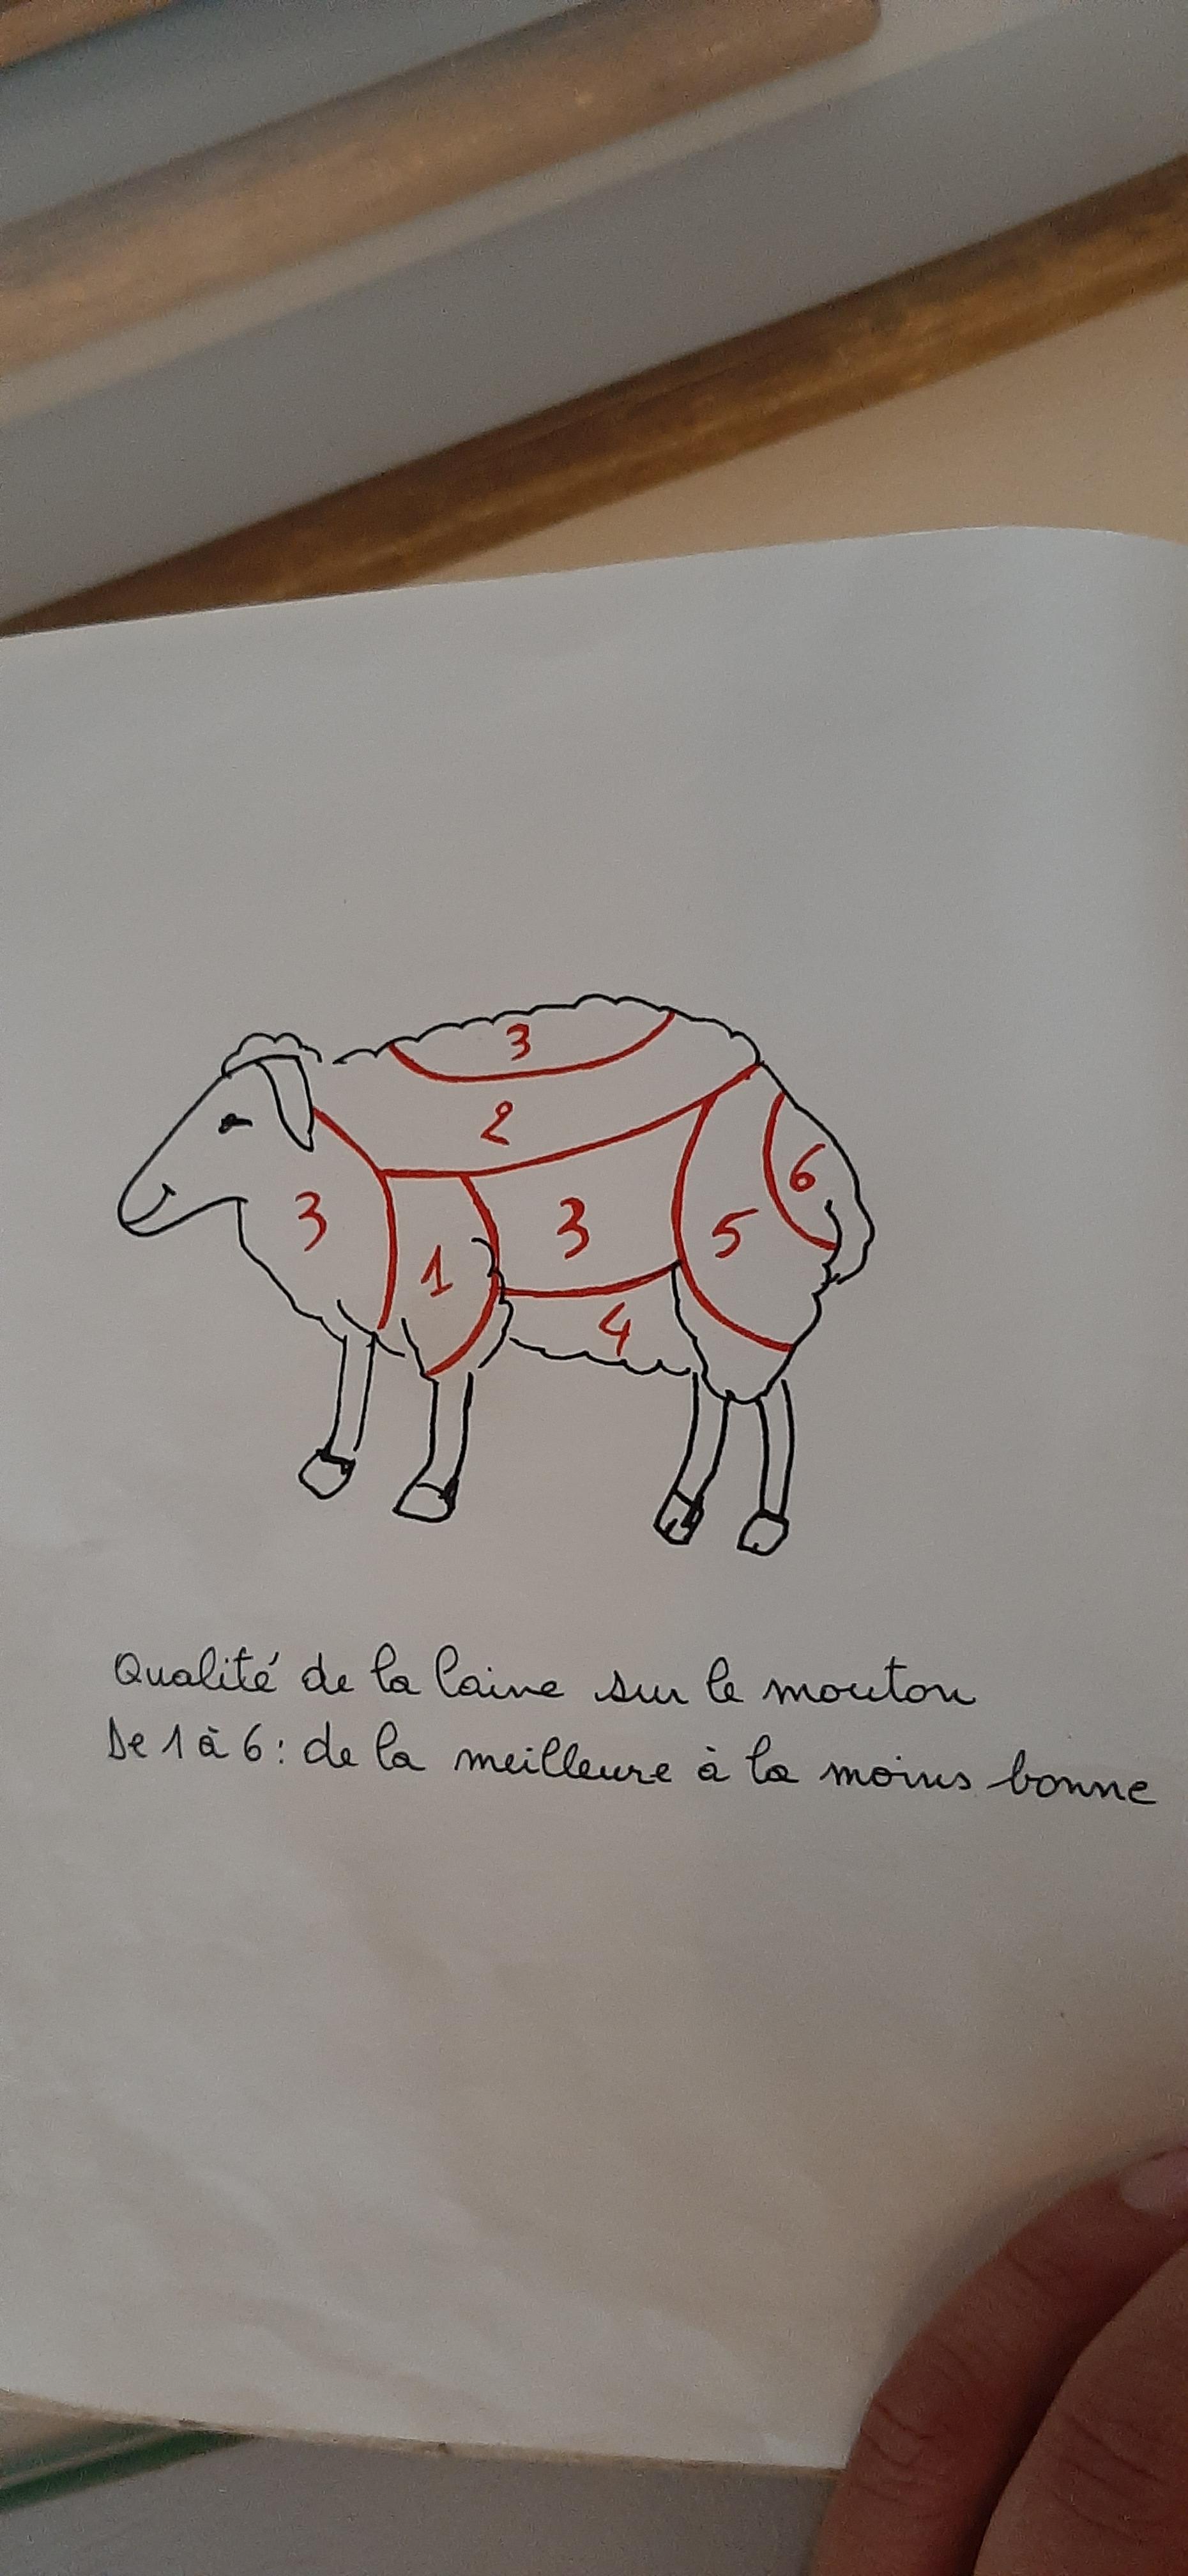 3
2
3
1
3
4
5
6
Qualité de la laine sur le mouton
De 1 à 6 : de la meilleure à la moins bonne